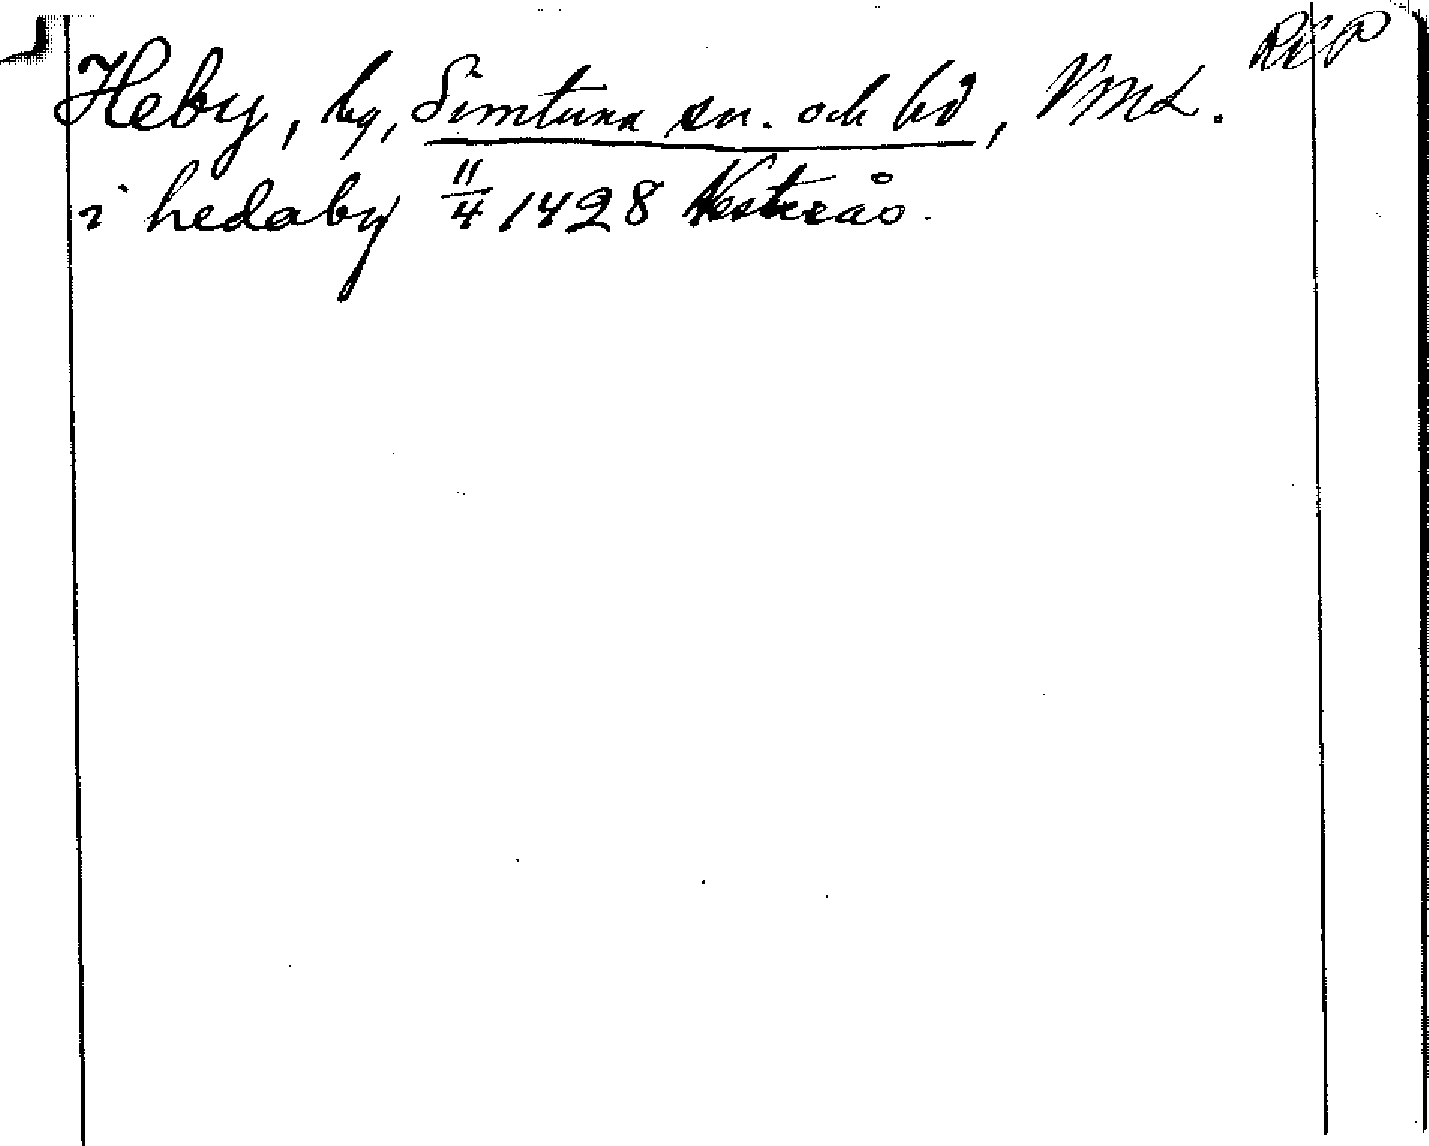 RAP
Heby, by, Simtuna sn. och hd, VmL.
i hedaby 11/4 1428 Westerås.